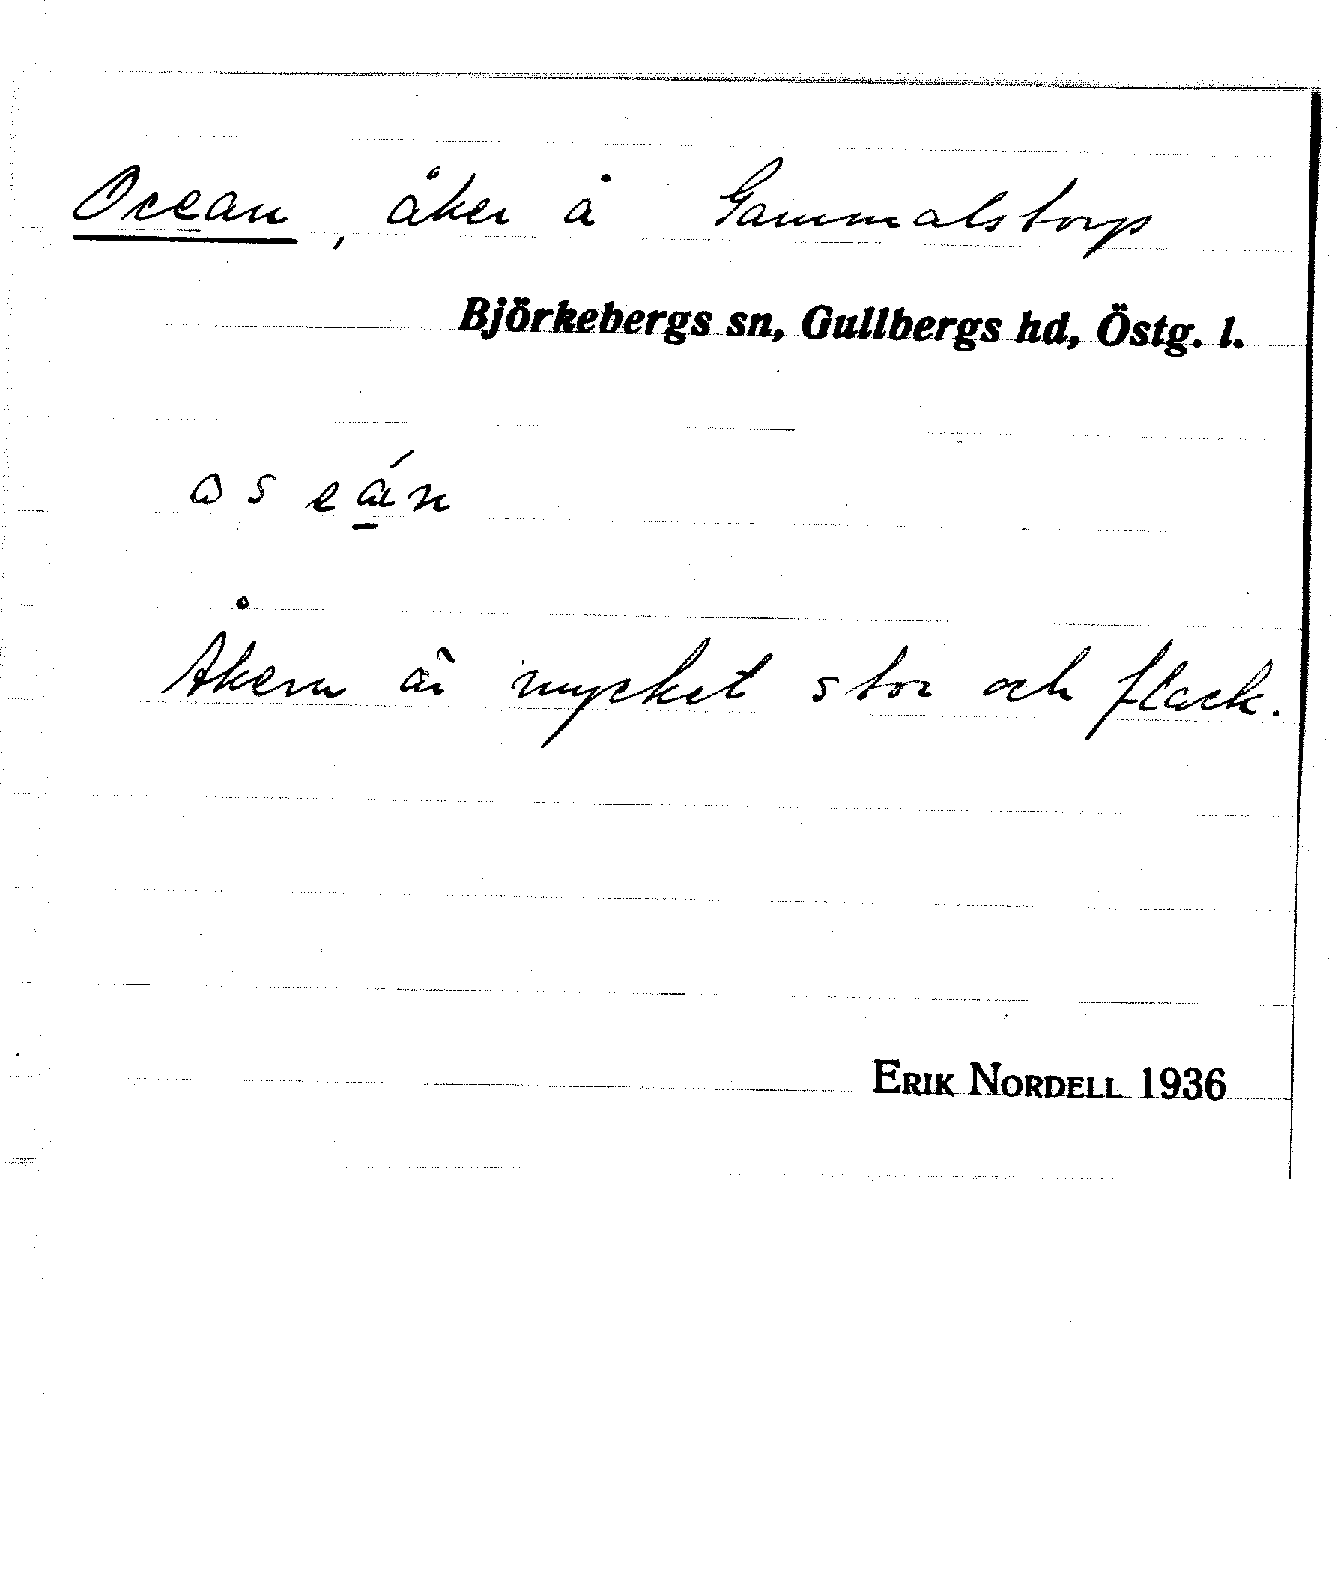 Ocean, åker å Gammalstorp
Björkebergs sn, Gullbergs hd, Östg. l.
oseá̱n
Åkern är mycket stor och flack.
ERIK NORDELL 1936